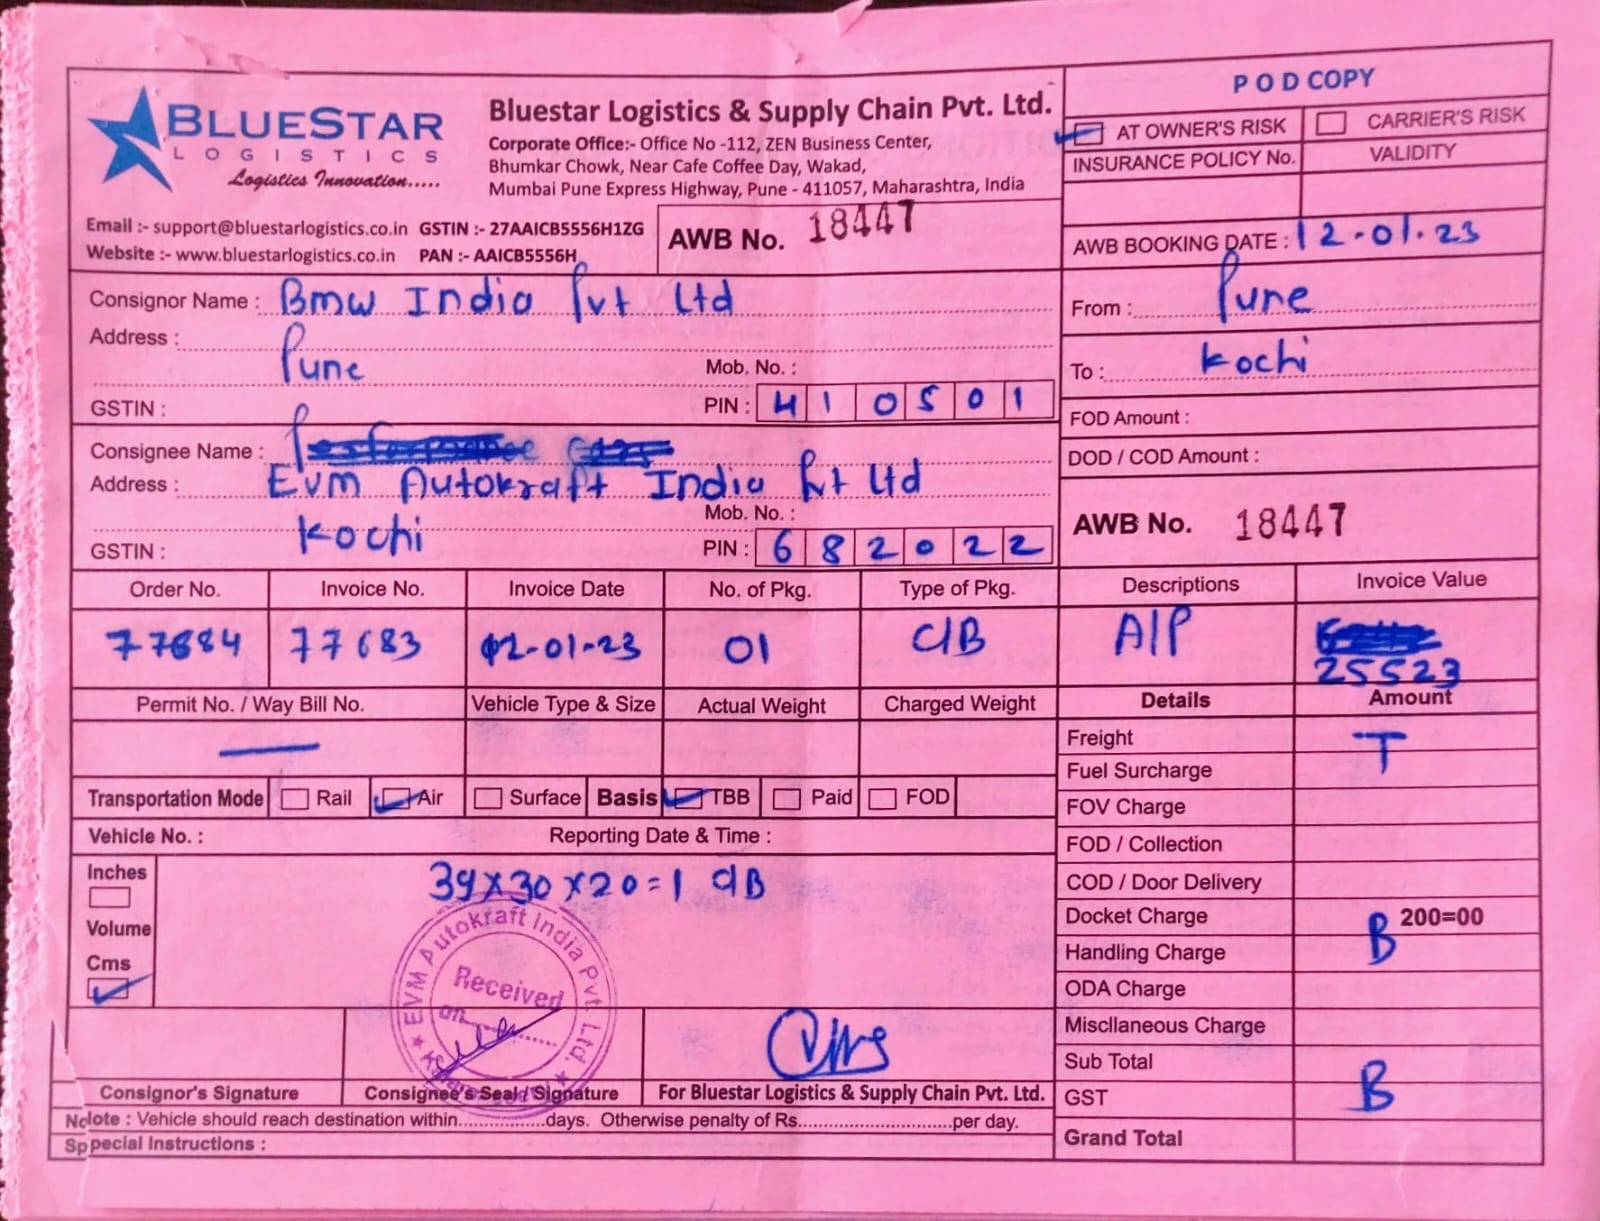 POD COPY
BLUESTAR
LOGISTICS
Logistics Innovation.....
Bluestar Logistics & Supply Chain Pvt. Ltd.
Corporate Office:- Office No -112, ZEN Business Center,
Bhumkar Chowk, Near Cafe Coffee Day, Wakad,
Mumbai Pune Express Highway, Pune - 411057, Maharashtra, India
AT OWNER'S RISK CARRIER'S RISK
INSURANCE POLICY No. VALIDITY
Email :- support@bluestarlogistics.co.in GSTIN :- 27AAICB5556H1ZG
Website :- www.bluestarlogistics.co.in PAN :- AAICB5556H
AWB No. 18447
AWB BOOKING DATE : 12-01-23
Consignor Name : Bmw India Pvt Ltd
Address :
Pune
Mob. No. :
GSTIN : PIN : 410501
From : Pune
To : Kochi
FOD Amount :
DOD / COD Amount :
Consignee Name :
Address : Evm Autokraft India Pvt Ltd
Mob. No. :
Kochi
GSTIN : PIN : 682022
AWB No. 18447
Order No. Invoice No. Invoice Date No. of Pkg. Type of Pkg. Descriptions Invoice Value
77684 77683 02-01-23 01 C/B A/P
25523
Permit No. / Way Bill No. Vehicle Type & Size Actual Weight Charged Weight Details Amount
Freight T
Fuel Surcharge
FOV Charge
FOD / Collection
COD / Door Delivery
Docket Charge 200=00
Handling Charge B
ODA Charge
Miscllaneous Charge
Sub Total
GST B
Grand Total
Transportation Mode Rail Air Surface Basis TBB Paid FOD
Vehicle No. : Reporting Date & Time :
Inches
Volume
Cms
39x30x20=1 C/B
EVM Autokraft India Pvt. Ltd.
Received
on
Consignor's Signature Consignee's Seal / Signature For Bluestar Logistics & Supply Chain Pvt. Ltd.
Note : Vehicle should reach destination within................days. Otherwise penalty of Rs............................per day.
Special Instructions :